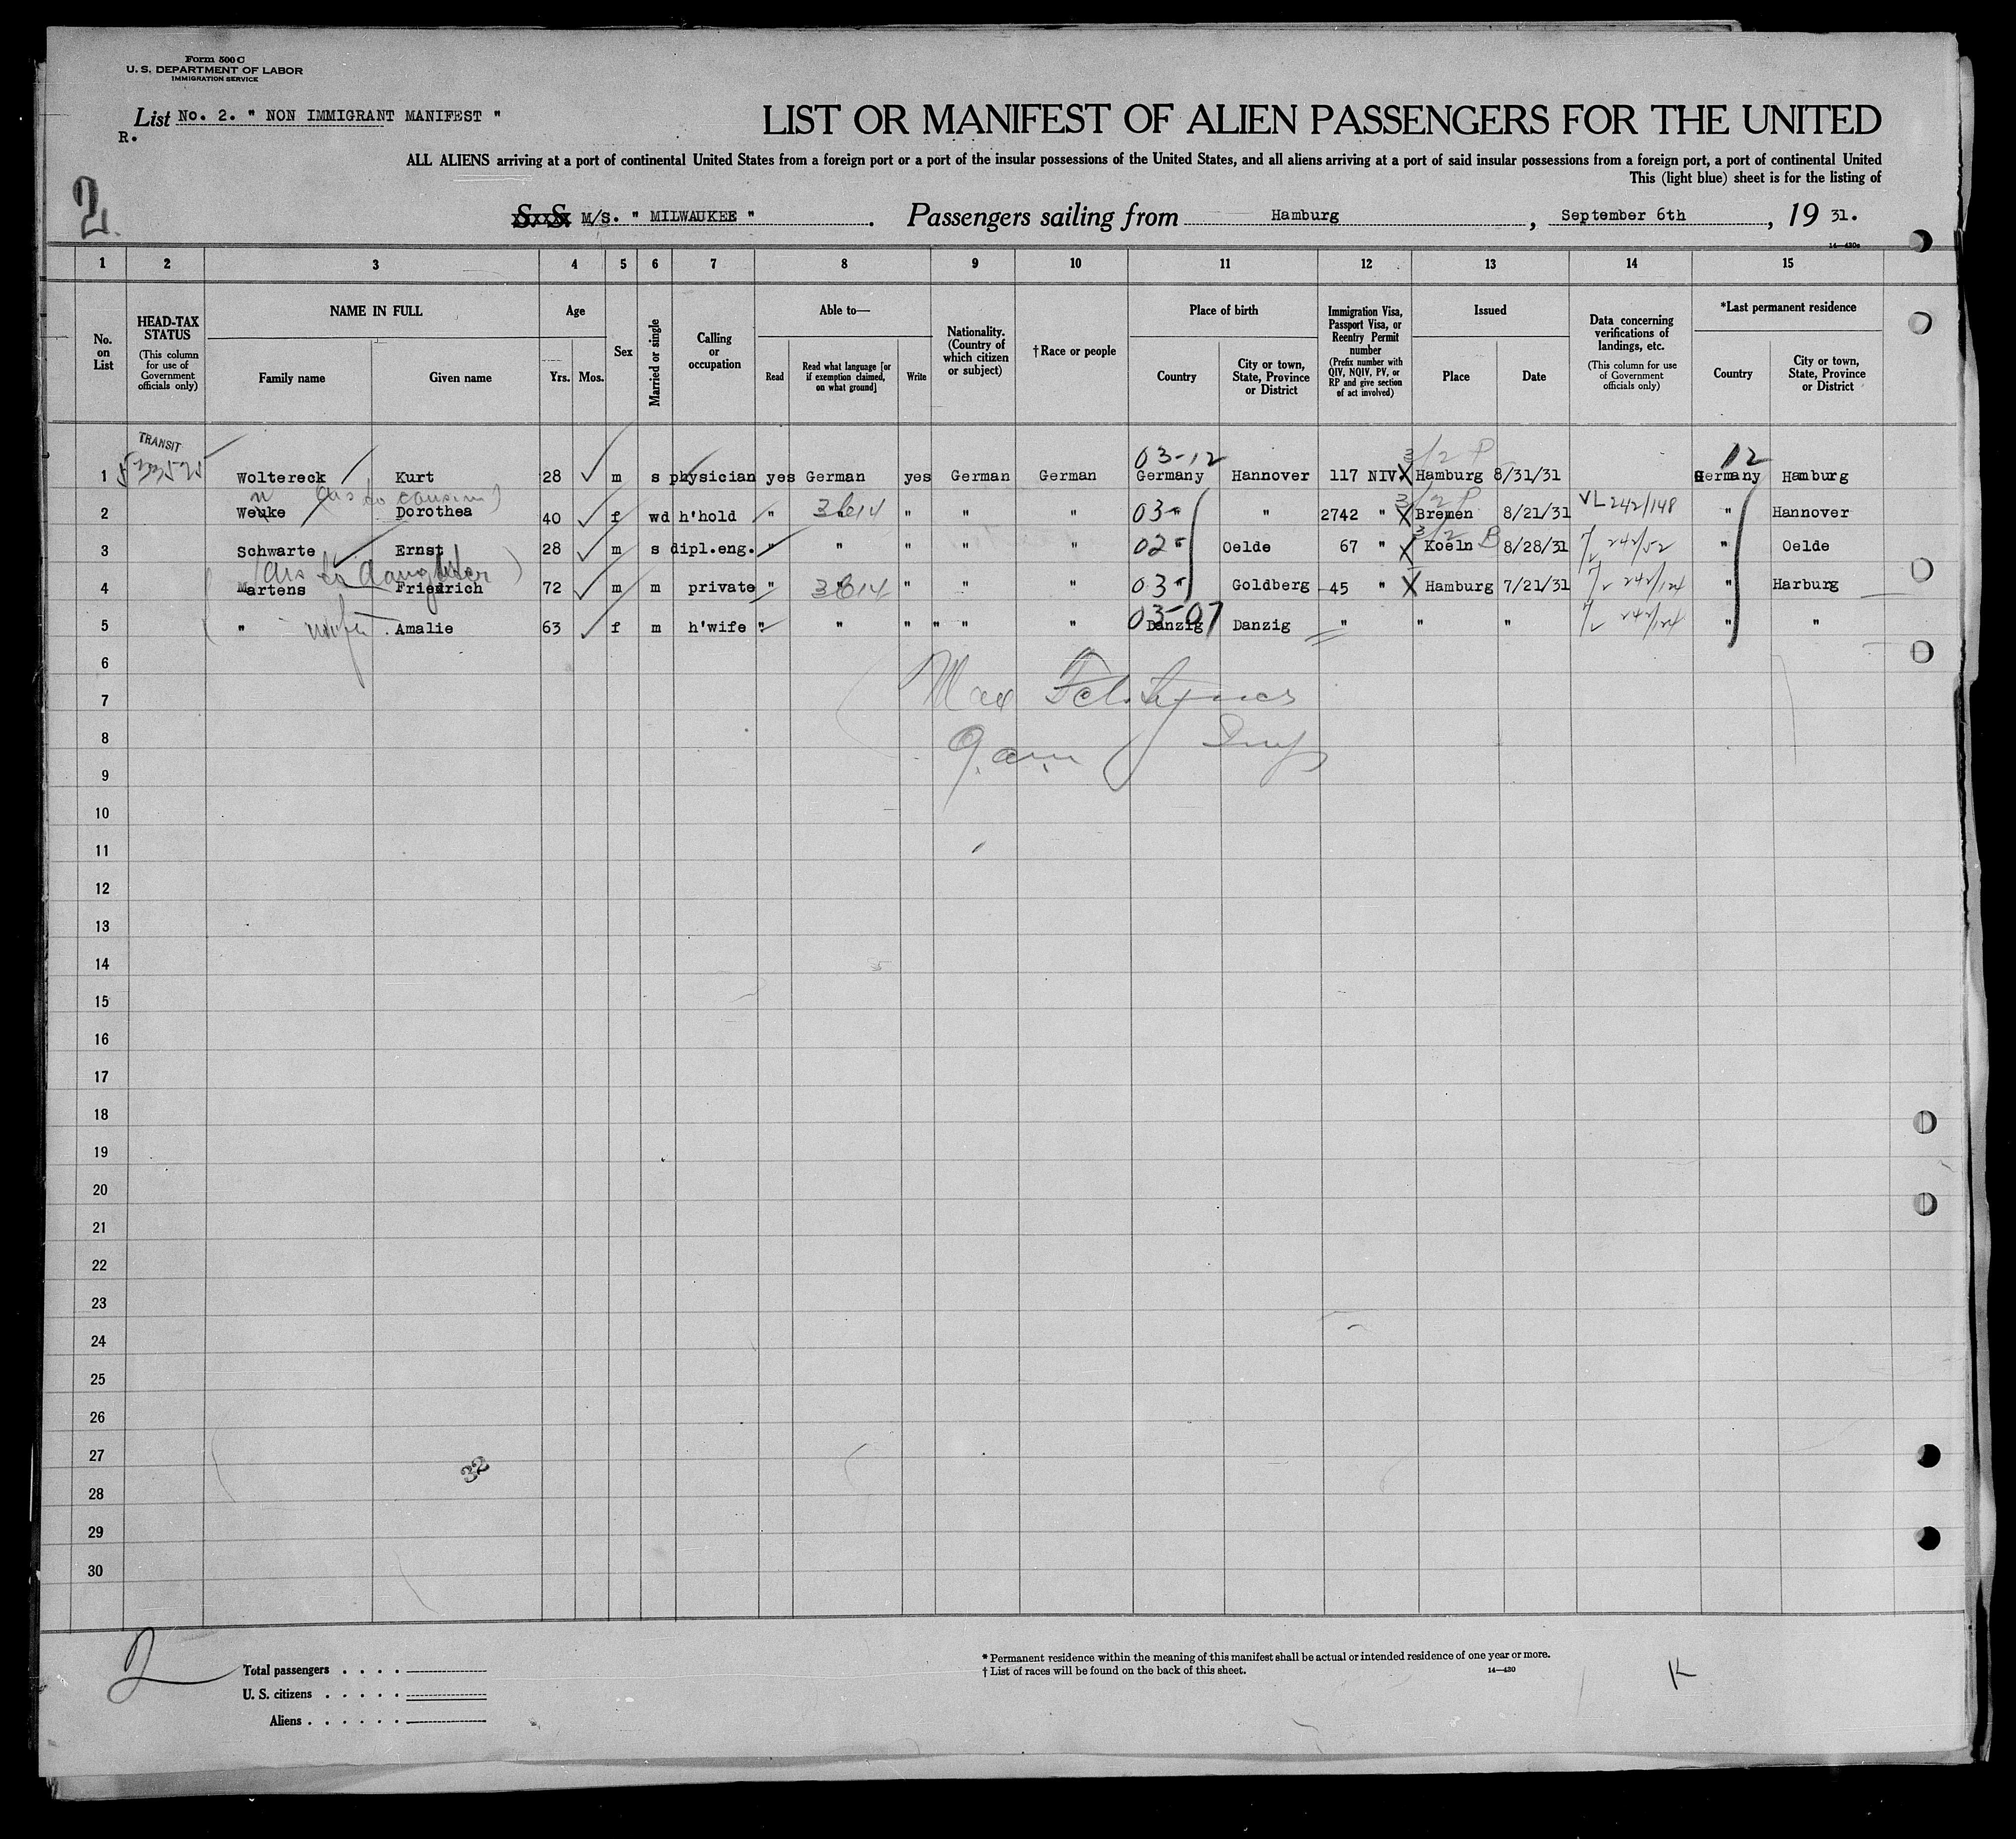 Form 500 C
U. S. DEPARTMENT OF LABOR
IMMIGRATION SERVICE
List No. 2. " NON IMMIGRANT MANIFEST "
R.
LIST OR MANIFEST OF ALIEN PASSENGERS FOR THE UNITED
ALL ALIENS arriving at a port of continental United States from a foreign port or a port of the insular possessions of the United States, and all aliens arriving at a port of said insular possessions from a foreign port, a port of continental United
This (light blue) sheet is for the listing of
2.
S. S. M/S. " MILWAUKEE ". Passengers sailing from Hamburg, September 6th, 19 31.
14—420a
1 2 3 4 5 6 7 8 9 10 11 12 13 14 15
No. on List
HEAD-TAX STATUS
(This column for use of Government officials only)
NAME IN FULL
Family name
Given name
Age
Yrs. Mos.
Sex
Married or single
Calling or occupation
Able to—
Read
Read what language [or if exemption claimed, on what ground]
Write
Nationality. (Country of which citizen or subject)
†Race or people
Place of birth
Country
City or town, State, Province or District
Immigration Visa, Passport Visa, or Reentry Permit number
(Prefix number with QIV, NQIV, PV, or RP and give section of act involved)
Issued
Place
Date
Data concerning verifications of landings, etc.
(This column for use of Government officials only)
*Last permanent residence
Country
City or town, State, Province or District
TRANSIT
03-12 3/2 P 12
1 Woltereck Kurt 28 m s physician yes German yes German German Germany Hannover 117 NIV. Hamburg 8/31/31 Germany Hamburg
n (as to cousin) 3/2 P
2 Weuke Dorothea 40 f wd h'hold " " 3614 " " " 03- " " 2742 " Bremen 8/21/31 VL 242/148 " Hannover
3/2 B
3 Schwarte Ernst 28 m s dipl.eng. " " " " " 02- " Oelde 67 " Koeln 8/28/31 242/52 " Oelde
(as to daughter)
4 Martens Friedrich 72 m m private " " 3614 " " " 03- " Goldberg 45 " Hamburg 7/21/31 242/124 " Harburg
03-07
5 " wife Amalie 63 f m h'wife " " " " " " Danzig Danzig " " " 242/124 " "
6
7 Max
8 9 am
9
10
11
12
13
14
15
16
17
18
19
20
21
22
23
24
25
26
27
32
28
29
30
2
Total passengers . . . .
U. S. citizens . . . . .
Aliens . . . . . .
* Permanent residence within the meaning of this manifest shall be actual or intended residence of one year or more.
† List of races will be found on the back of this sheet.
14—420
K